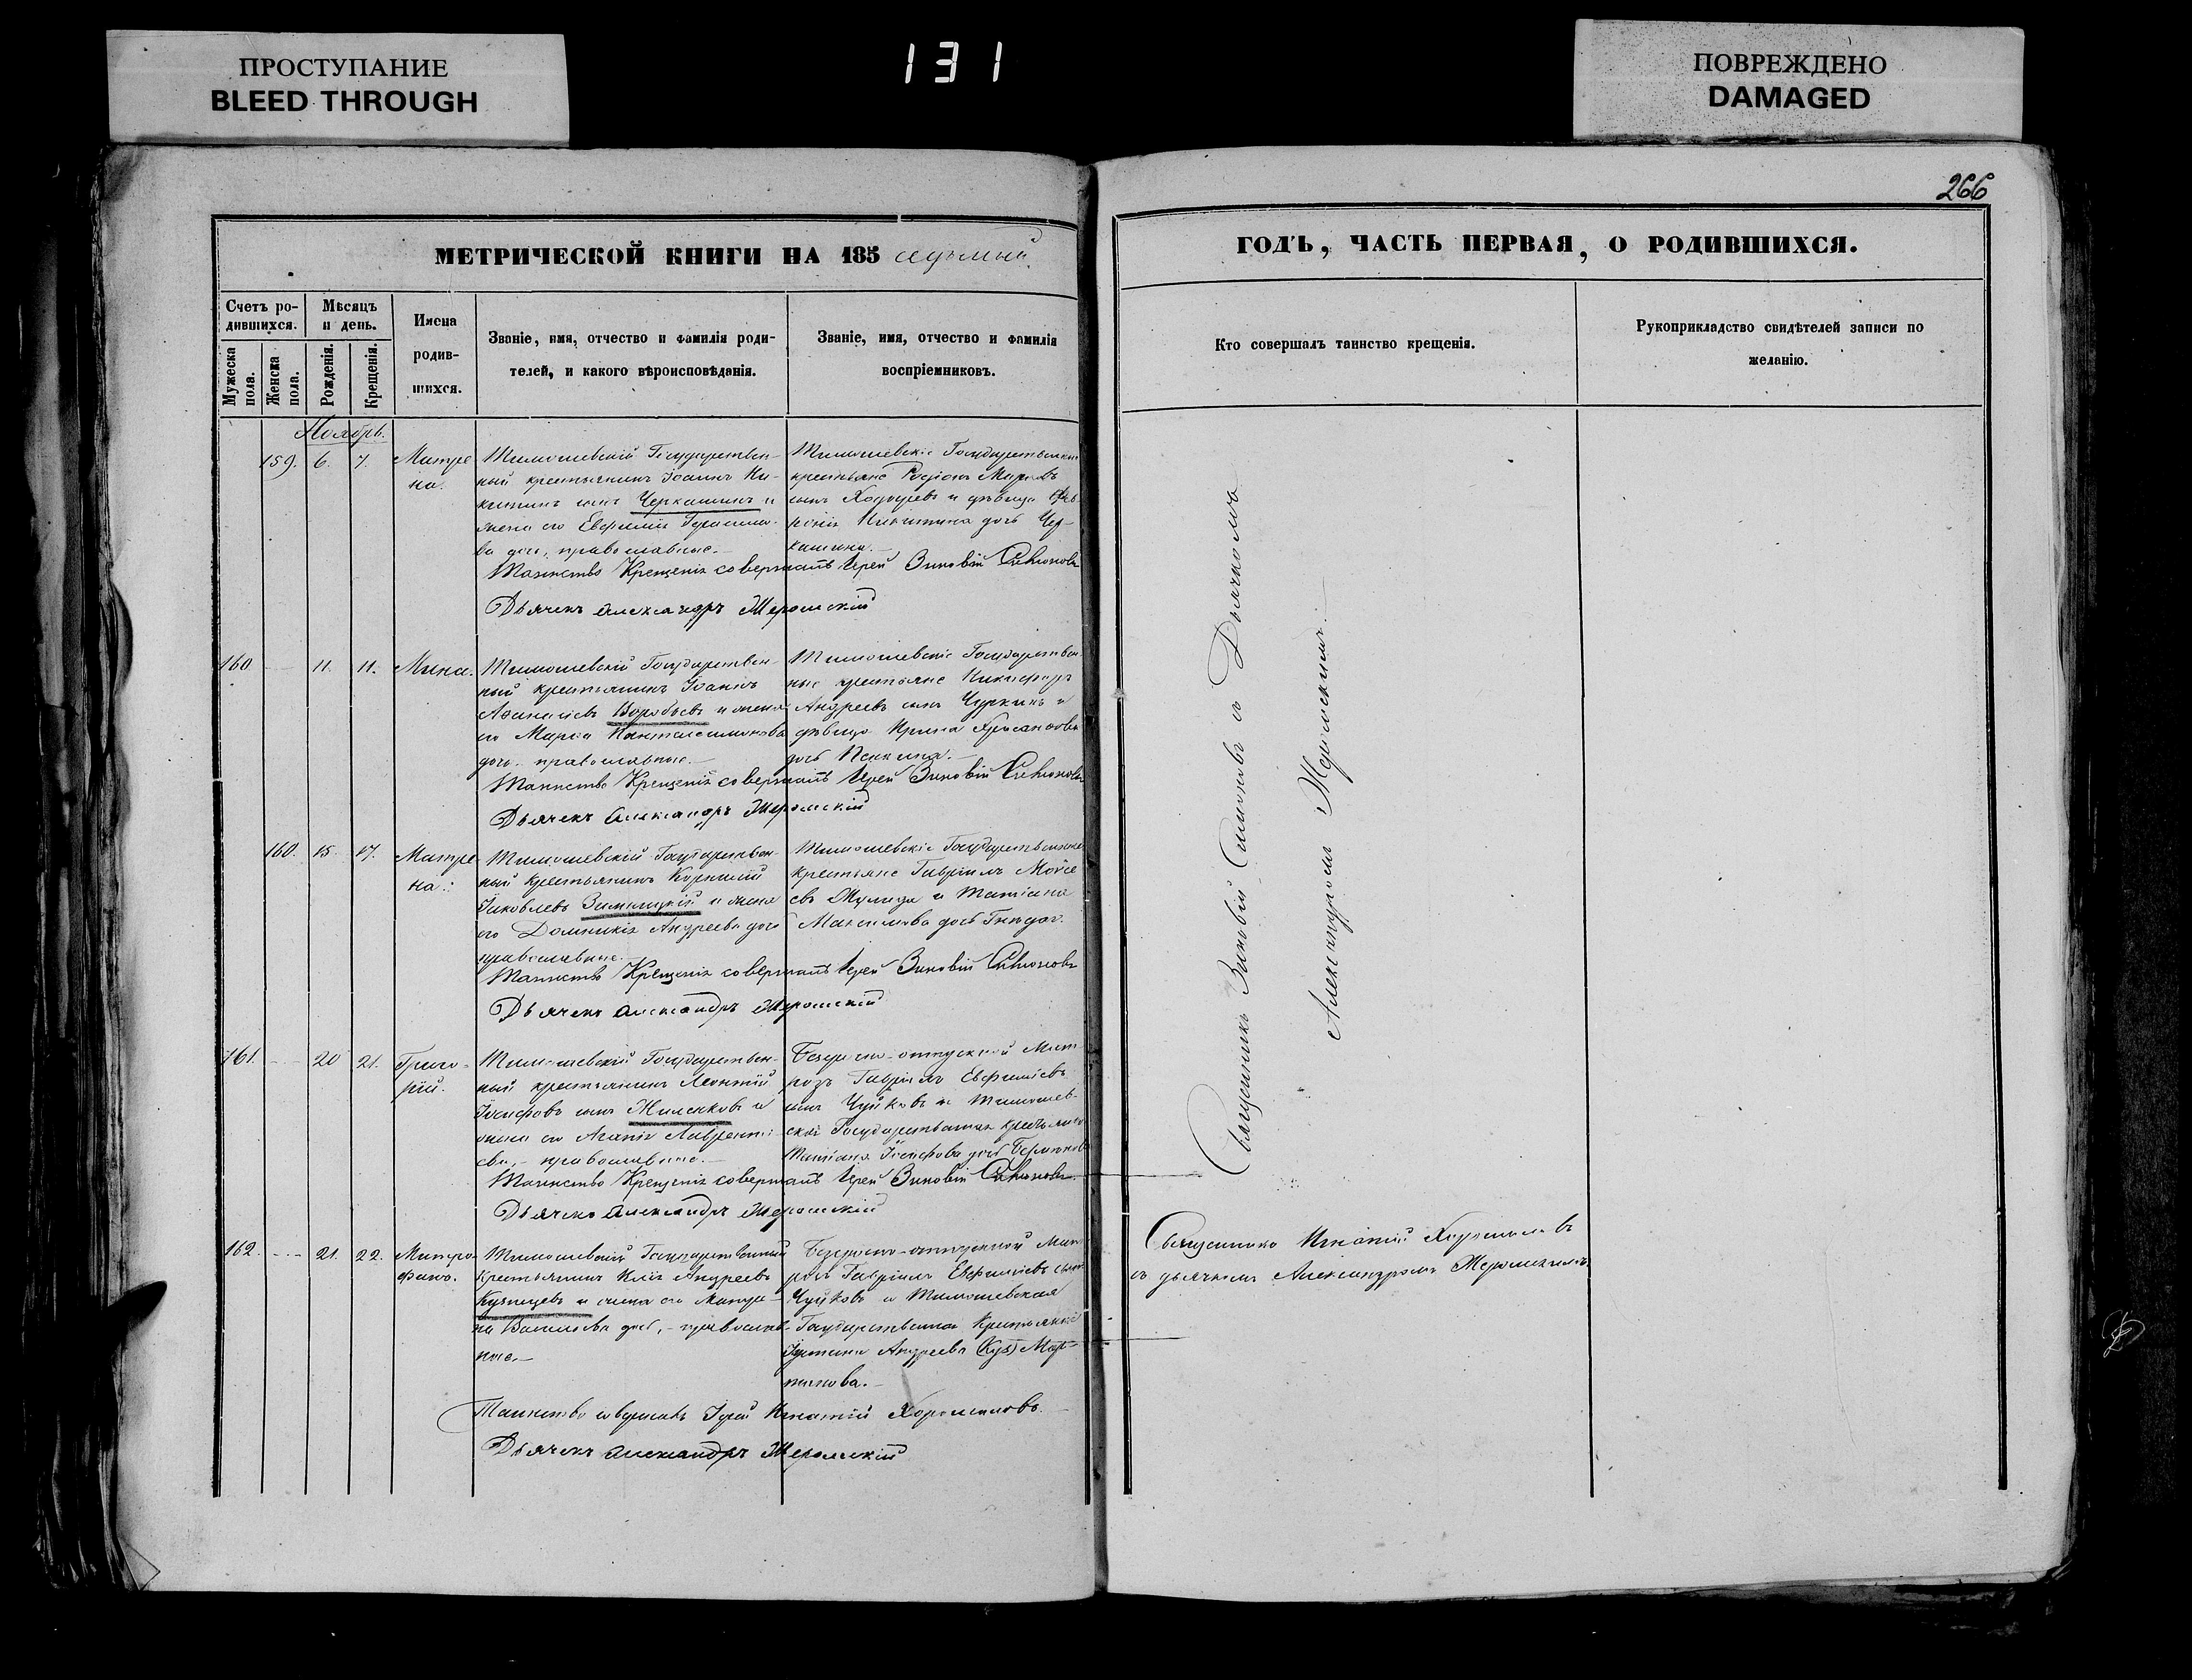 ПРОСТУПАНИЕ
BLEED THROUGH
131
ПОВРЕЖДЕНО
DAMAGED
266
МЕТРИЧЕСКОЙ КНИГИ НА 185 седьмый
ГОДЪ, ЧАСТЬ ПЕРВАЯ, О РОДИВШИХСЯ.
Счетъ ро-
дившихся.
Мужеска
пола.
Женска
пола.
Мѣсяцъ
и день.
Рожденія.
Крещенія.
Имена
родив-
шихся.
Званіе, имя, отчество и фамилія роди-
телей, и какого вѣроисповѣданія.
Званіе, имя, отчество и фамилія
воспріемниковъ.
Кто совершалъ таинство крещенія.
Рукоприкладство свидѣтелей записи по
желанію.
Ноябрь.
159. 6. 7.
Матре
на.
Тимошевскій Государствен-
ный крестьянинъ Іоаннъ Ни-
китинъ сынъ Черкашинъ и
жена его Евфимія Герасимо-
ва дочь, православные.-
Тимошевскіе Государственные
крестьяне Родіонъ Марковъ
сынъ и дѣвица
Никитина дочь Чер-
кашина.-
Таинство Крещенія совершалъ Іерей Зиновій Симоновъ
Дьячекъ Александръ Жеромскій
160 11. 11.
Мина.
Тимошевскій Государствен-
ный крестьянинъ Іоаннъ
Аѳанасіевъ Воробьевъ и жена
его Марія Пантелеимонова
дочь. православные.-
Тимошевскіе Государствен-
ные крестьяне Никифоръ
Андреевъ сынъ Чуркинъ и
дѣвица Ирина Хрисанфова
дочь
Таинство Крещенія совершалъ Іерей Зиновій Симоновъ
Дьячекъ Александръ Жеромскій
160. 15. 17.
Матре-
на.:
Тимошевскій Государствен-
ный крестьянинъ Корнилій
Іаковлевъ и жена
его Домникія Андреева дочь
православные.
Тимошевскіе Государственные
крестьяне Гавріилъ Мойсе
евъ и Татіана
Максимова дочь
Таинство Крещенія совершалъ Іерей Зиновій Симоновъ
Дьячекъ Александръ Жеромскій
161. 20 21.
Григо-
рій.
Тимошевскій Государствен-
ный крестьянинъ Леонтій
Іосифовъ сынъ и
жена его Агапія Лавренті-
ева,- православные.-
Безсрочно-отпускной Мат-
розъ Гавріилъ Евфиміевъ
сынъ Чуйковъ и Тимошев-
ская Государственная крестьянка
Татіана Іосифова дочь
Таинство Крещенія совершалъ Іерей Зиновій Симоновъ
Дьячекъ Александръ Жеромскій
162. 21. 22.
Митро-
фанъ.
Тимошевскій Государственный
крестьянинъ Илія Андреевъ
Кузнецовъ и жена его Матре-
на Васильева дочь,- православ-
ные.-
Безсрочно-отпускной Мат
розъ Гавріилъ Евфиміевъ сынъ
Чуйковъ и Тимошевская
Государственная Крестьянка
Іустина Андреева (Куз) Мар-
тынова.-
Таинство совершалъ Іерей Игнатій Хорошиловъ.
Дьячекъ Александръ Жеромскій
Священникъ Зиновій Симоновъ съ Дьячкомъ
Александромъ Жеромскимъ.
Священникъ Игнатій Хорошиловъ
съ дьячкомъ Александромъ Жеромскимъ